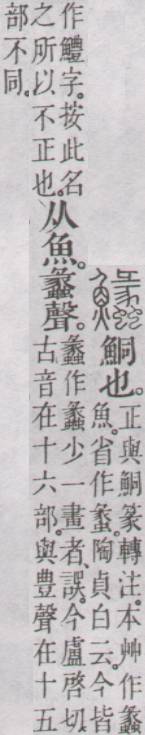 鮦也。
正與鮦篆轉注。本艸作蠡
魚。省作陶貞白云。今皆
作鱧字。按此名
之所以不正也。
从魚。蠡聲。
蠡作蠡少一畫者、誤。今盧啓切。
古音在十六部。與豊聲在十五
部不同。